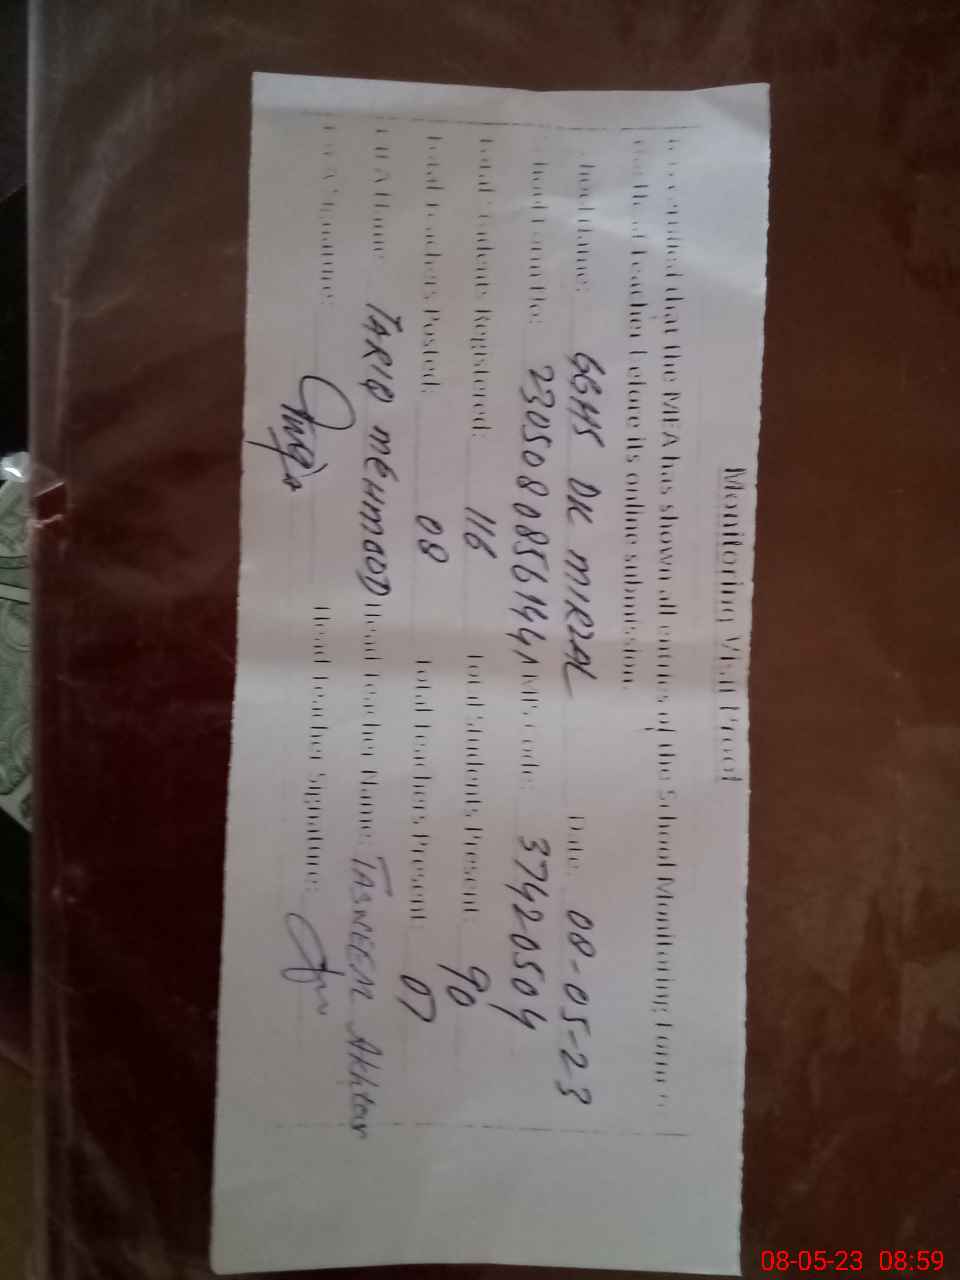 Monitoring Visit Proof
It is certified that the MEA has shown all entries of the School Monitoring Form to
the Head Teacher before its online submission.
School Name: GGHS DK MIRZAL Date: 08-05-23
School Form No: 23050808561441 EMIS Code: 37420504
Total Students Registered: 116 Total Students Present: 90
Total Teachers Posted: 08 Total Teachers Present: 07
MEA Name: TARIQ MEHMOOD Head Teacher Name: TASNEEM Akhtar
MEA Signature: Head Teacher Signature:
08-05-23 08:59